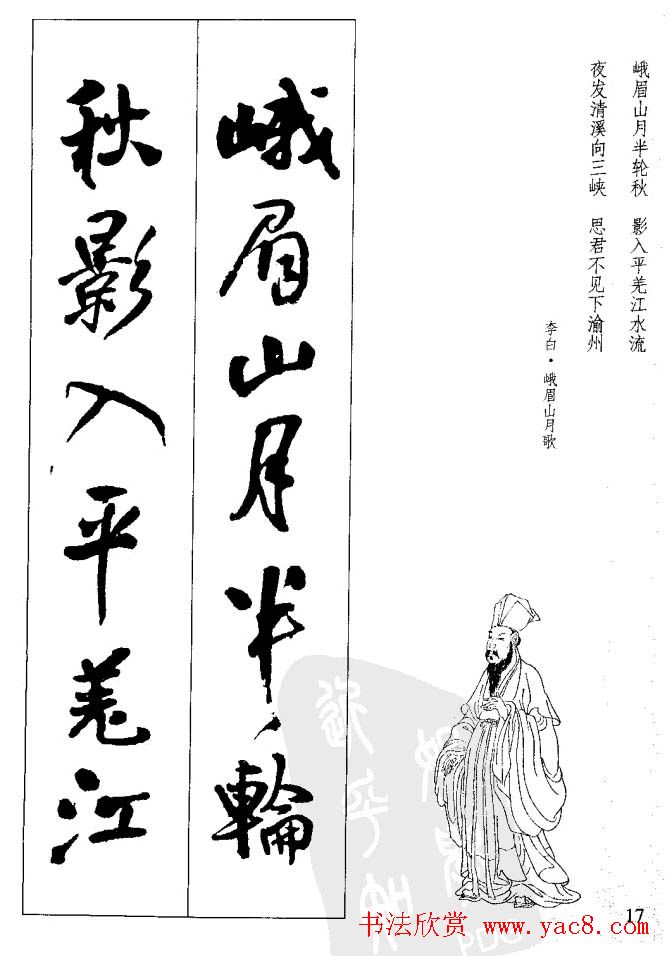 峨眉山月半轮秋 影入平羌江水流
夜发清溪向三峡 思君不见下渝州
李白·峨眉山月歌
峨眉山月半輪
秋影入平羌江
17
书法欣赏 www.yac8.com
PDG